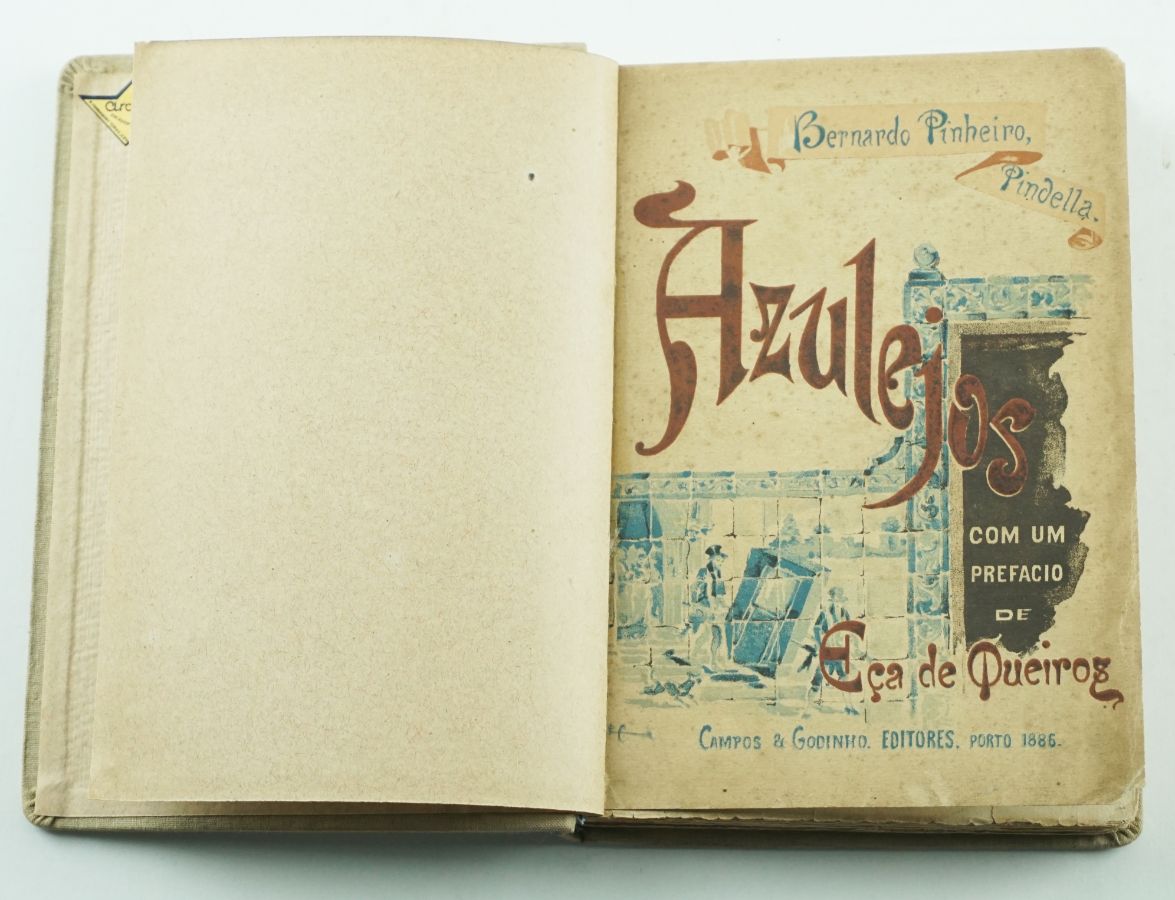 Bernardo Pinheiro,
Pindella.
Azulejos
COM UM
PREFACIO
DE
Eça de Queiroz
CAMPOS & GODINHO. EDITORES. PORTO 1886.